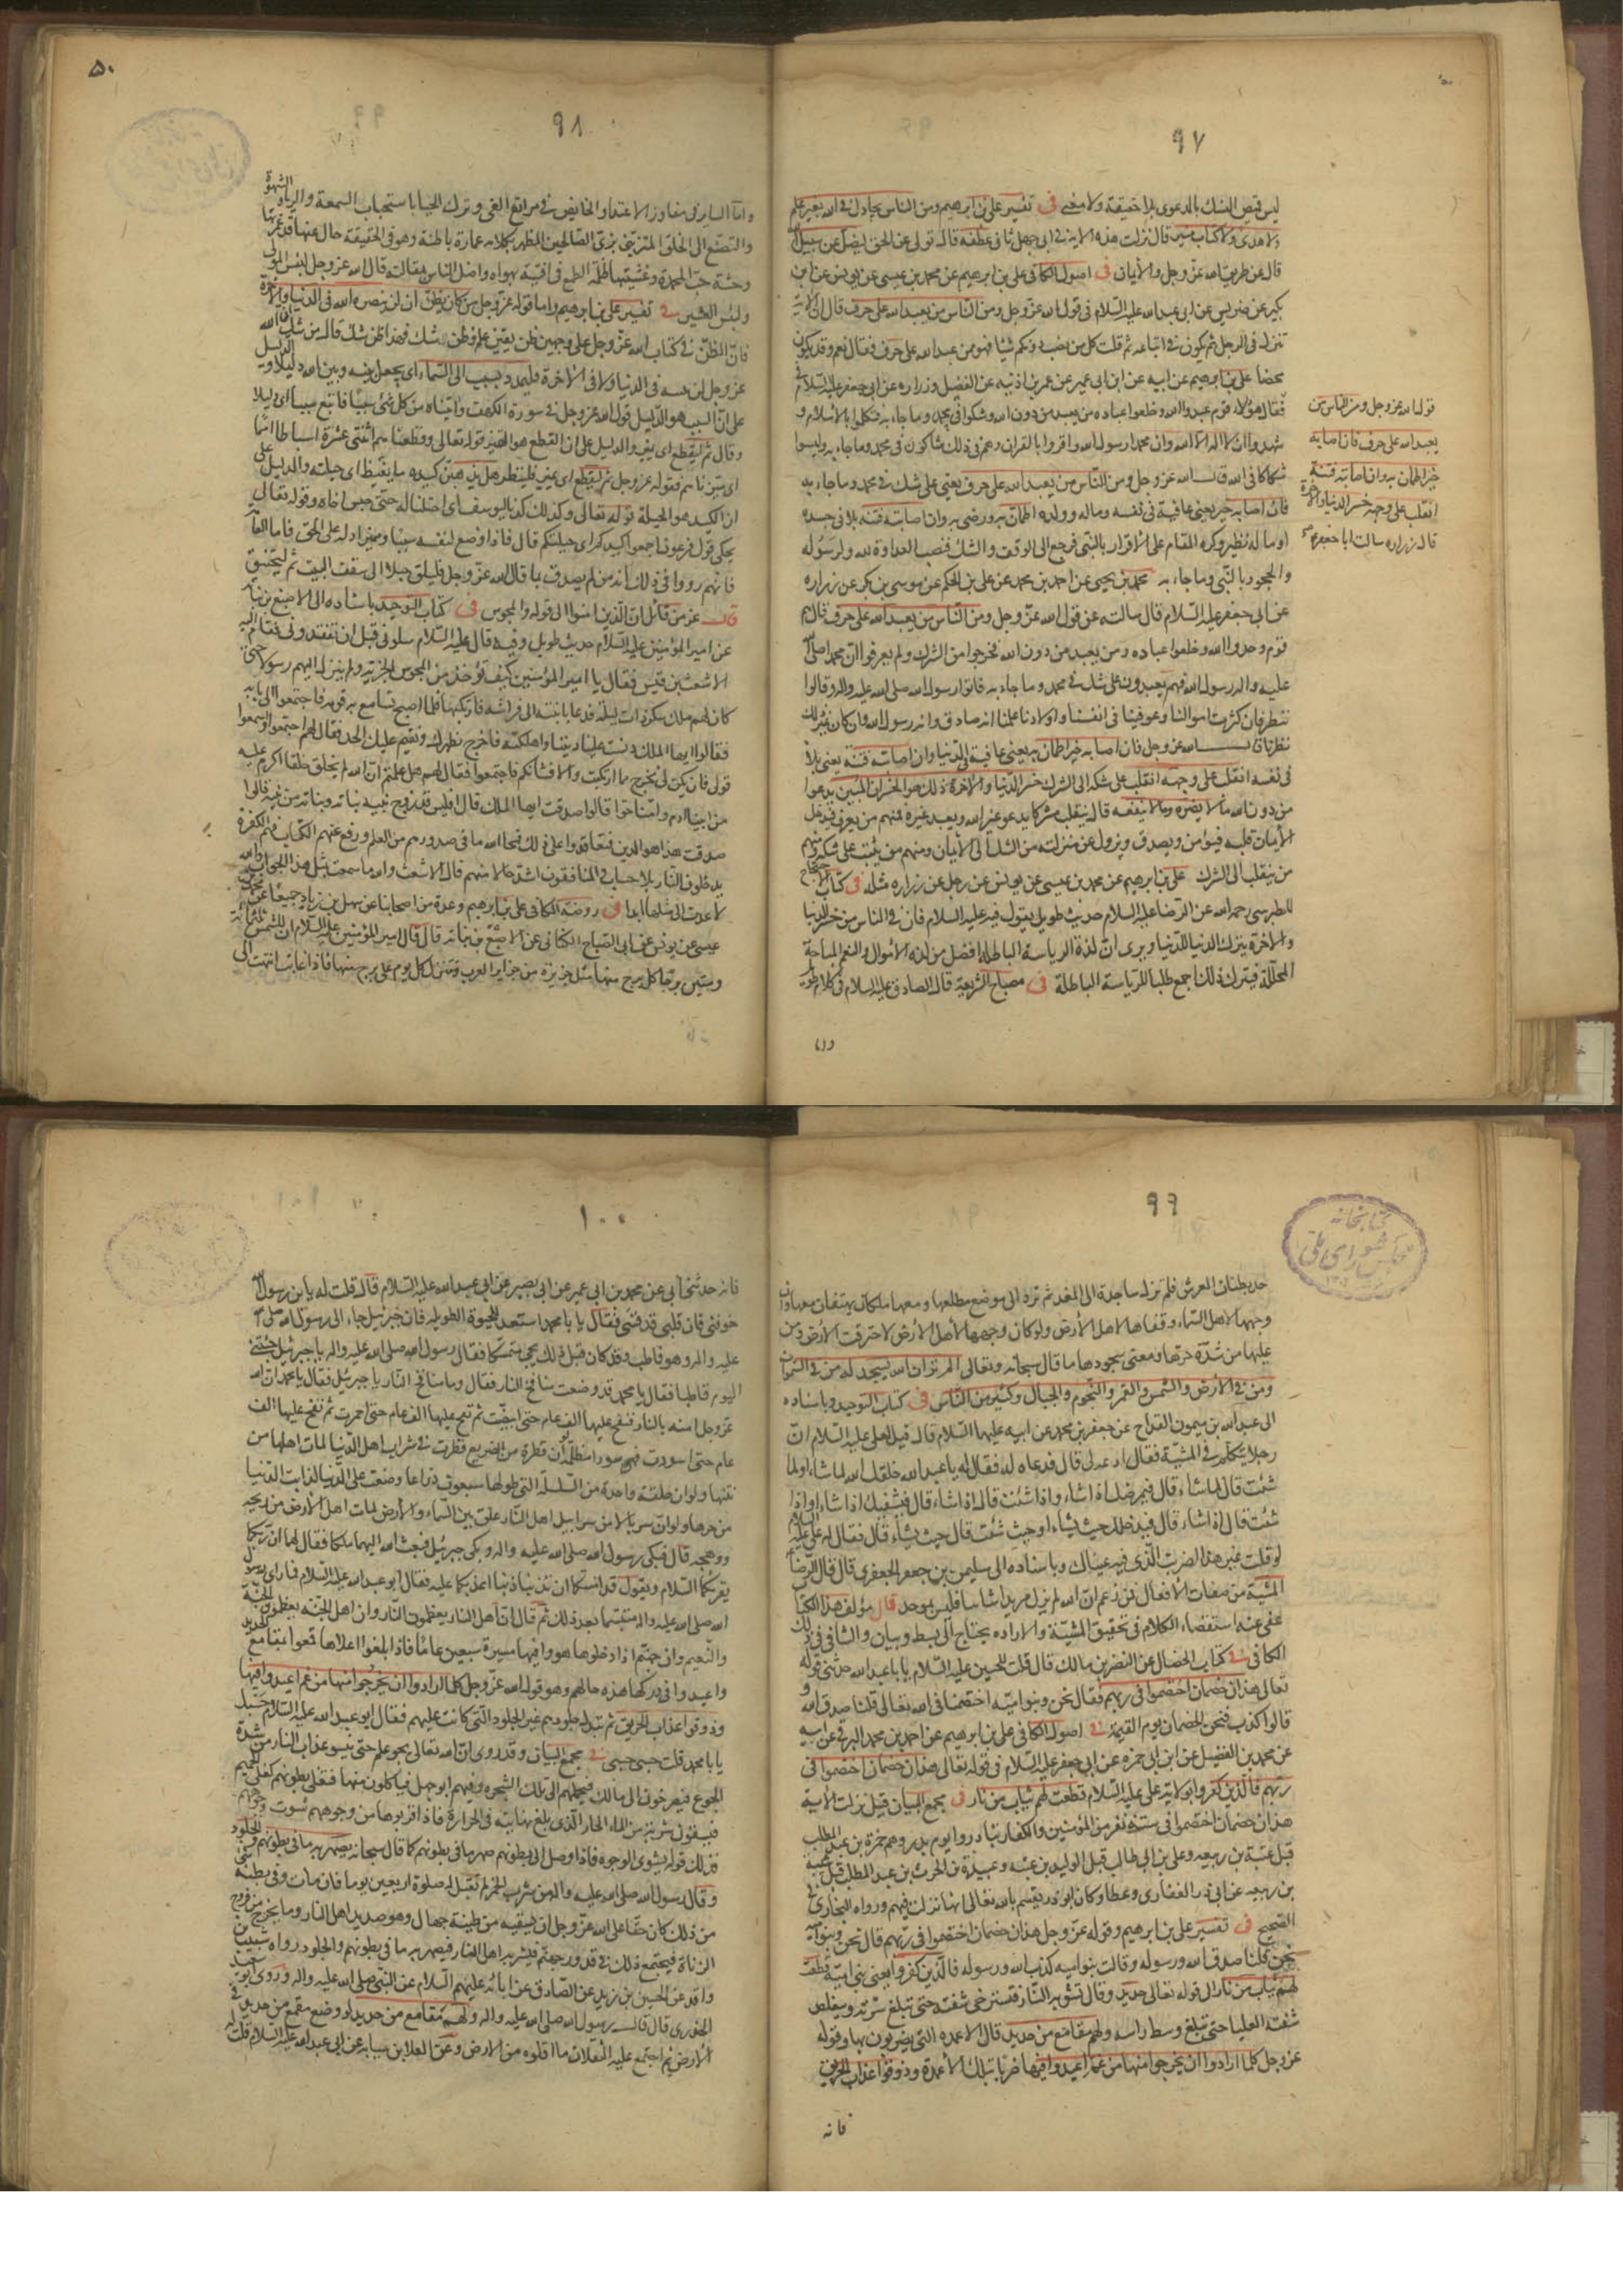 ٩٧
ليس قميص النسك بالدعوى بلا حقيقة ولا معنى فى تفسير على بن ابرهيم ومن الناس يجادل فى الله بغير علم
ولا هدى ولا كتاب منير قال نزلت هذه الاية فى ابى جهل ثانى عطفه قال تولى عن الحق ليضل عن سبيل الله
قال عن طريق الله عز وجل والأيمان فى اصول الكافى على بن ابرهيم عن محمد بن عيسى عن يونس عن ابن
بكير عن ضريس عن ابى عبد الله عليه السلام فى قول الله عز وجل ومن الناس من يعبد الله على حرف قال ان الاية
تنزل فى الرجل ثم تكون فى اتباعه ثم قلت كل من نصب دونكم شيئا فهو ممن عبد الله على حرف فقال نعم وقد يكون
محضا على بن ابرهيم عن ابيه عن ابن ابى عمير عن عمر بن اذينه عن الفضيل وزراره عن ابى جعفر عليه السلام فى
فقال هؤلاء قوم عبدوا الله وخلعوا عباده من يعبد من دون الله وشكوا فى محمد وما جاء به فتكلموا بالاسلام و
شهدوا ان لا اله الا الله وان محمدا رسول الله واقروا بالقران وهم فى ذلك شاكون فى محمد وما جاء به وليسوا
شكاكا فى الله قال الله عز وجل ومن الناس من يعبد الله على حرف يعنى على شك فى محمد وما جاء به
فان اصابه خير يعنى عافية فى نفسه وماله وولده اطمان به ورضى به وان اصابته فتنه بلاء فى جسده
او ماله تطير وكره المقام على الاقرار بالنبى فرجع الى الوقف والشك فنصب العداوة لله ولرسوله
والجحود بالنبى وما جاء به محمد بن يحيى عن احمد بن محمد عن على بن الحكم عن موسى بن بكر عن زراره
عن ابى جعفر عليه السلام قال سالته عن قول الله عز وجل ومن الناس من يعبد الله على حرف قال هم
قوم وحدوا الله وخلعوا عباده من يعبد من دون الله فخرجوا من الشرك ولم يعرفوا ان محمدا صلى الله
عليه واله رسول الله فهم يعبدون على شك فى محمد وما جاء به فاتوا رسول الله صلى الله عليه واله وقالوا
ننظر فان كثرت اموالنا وعوفينا فى انفسنا واولادنا علمنا انه صادق وانه رسول الله وان كان غير ذلك
نظرنا قال الله عز وجل فان اصابه خير اطمان به يعنى عافية فى الدنيا وان اصابته فتنة يعنى بلاء
فى نفسه انقلب على وجهه انقلب على شكه الى الشرك خسر الدنيا والاخرة ذلك هو الخسران المبين يدعوا
من دون الله ما لا يضره وما لا ينفعه قال ينقلب مشركا يدعو غير الله ويعبد غيره فمنهم من يعرف فيدخل
الايمان قلبه فيؤمن ويصدق ويزول عن منزلته من الشك الى الأيمان ومنهم من يثبت على شكه ومنهم
من ينقلب الى الشرك على بن ابرهيم عن محمد بن عيسى عن يونس عن رجل عن زراره مثله فى كتاب الاحتجاج
للطبرسى رحمه الله عن الرضا عليه السلام حديث طويل يقول فيه عليه السلام فان فى الناس من خسر الدنيا
والاخرة يترك الدنيا للدنيا ويرى ان لذة الرياسة الباطلة افضل من لذة الأموال والنعم المباحة
المحللة فيترك ذلك اجمع طلبا للرياسة الباطلة فى مصباح الشريعة قال الصادق عليه السلام فى كلام طويل
واما
قوله الله عز وجل ومن الناس من
يعبد الله على حرف فان اصابه
خير اطمان به وان اصابته فتنة
انقلب على وجهه خسر الدنيا والاخرة
قال زراره سالت ابا جعفر ع
٥٠
٩٨
واما السايرفى مفاوز الاعتداء والخايض فى مراتع الغى وترك الحيا باستحباب السمعة والرياء والشهوة
والتصنع الى الخلق المتزيى بزى الصالحين المظهر بكلامه عمارة باطنه وهو فى الحقيقة خال عنها قد غمرتها
وحشة حب المحمدة وغشيتها ظلمة الطمع فما افتنه بهواه واضل الناس بمقالته قال الله عز وجل لبئس المولى
ولبئس العشير فى تفسير على بن ابرهيم واما قوله عز وجل من كان يظن ان لن ينصره الله فى الدنيا والاخرة
فان الظن فى كتاب الله عز وجل على وجهين ظن يقين علم وظن شك فهذا ظن شك قال من شك ان الله
عز وجل لن يثيبه فى الدنيا ولا فى الاخرة فليمدد بسبب الى السماء اى يجعل بينه وبين الله دليلا والدليل
على ان السبب هو الدليل قول الله عز وجل فى سورة الكهف واتيناه من كل شئ سببا فاتبع سببا اى دليلا
وقال ثم ليقطع اى يميز والدليل على ان القطع هو التميز قوله تعالى وقطعناهم اثنتى عشرة اسباطا امما
اى ميزناهم فقوله عز وجل ثم ليقطع اى يميز فلينظر هل يذهبن كيده ما يغيظ اى حيلته والدليل على
ان الكيد هو الحيلة قوله تعالى وكذلك كدنا ليوسف اى احتلنا له حتى حبس اخاه وقوله تعالى
يحكى قول فرعون اجمعوا كيدكم اى حيلتكم قال فاذا وضع لنفسه سببا وميز ادله على الحق فاما العامة
فانهم رووا فى ذلك انه من لم يصدق بما قال الله عز وجل فليلق حبلا الى سقف البيت ثم ليختنق
قال عز من قائل ان الذين امنوا الى قوله والمجوس فى كتاب التوحيد باسناده الى الاصبغ بن نباته
عن امير المؤمنين عليه السلام حديث طويل وفيه قال عليه السلام سلونى قبل ان تفقدونى فقام اليه
الاشعث بن قيس فقال يا امير المؤمنين كيف تؤخذ من المجوس الجزية ولم ينزل اليهم رسولا حتى
كان لهم ملك سكر ذات ليلة فدعا بابنته الى فراشه فارتكبها فلما اصبح تسامع به قومه فاجتمعوا الى بابه
فقالوا ايها الملك دنست علينا ديننا واهلكته فاخرج نطهرك ونقيم عليك الحد فقال لهم اجتمعوا واسمعوا
قولى فان يكن لى مخرج مما ارتكبت والا فشانكم فاجتمعوا فقال لهم هل علمتم ان الله لم يخلق خلقا اكرم عليه
من ابينا ادم وامنا حوا قالوا صدقت ايها الملك قال افليس قد زوج بنيه بناته وبناته من بنيه قالوا
صدقت هذا هو الدين فتعاقدوا على ذلك فمحا الله ما فى صدورهم من العلم ورفع عنهم الكتاب فهم الكفرة
يدخلون النار بلا حساب والمنافقون اشد حالا منهم قال الاشعث والله ما سمعت بمثل هذا الجواب والله
لا عدت الى مثلها ابدا فى روضة الكافى على بن ابرهيم وعدة من اصحابنا عن سهل بن زياد جميعا عن محمد بن
عيسى عن يونس عن ابى الصباح الكنانى عن الاصبغ بن نباته قال قال امير المؤمنين عليه السلام ان للشمس ثلثمائة
وستين برجا كل برج منها مثل جزيرة من جزاير العرب وتنزل كل يوم على برج منها فاذا غابت انتهت الى
٩٩
كتابخانه
مجلس شوراى ملى
حد بطنان العرش فلم تزل ساجدة الى الغد ثم ترد الى موضع مطلعها ومعها ملكان يهتفان معها وان
وجهها لاهل السماء وقفاها لاهل الأرض ولو كان وجهها لأهل الأرض لاحترقت الأرض ومن
عليها من شدة حرها ومعنى سجودها ما قال سبحانه وتعالى الم تر ان الله يسجد له من فى السموات
ومن فى الأرض والشمس والقمر والنجوم والجبال وكثير من الناس فى كتاب التوحيد وباسناده
الى عبد الله بن ميمون القداح عن جعفر بن محمد عن ابيه عليهما السلام قال قيل لعلى عليه السلام ان
رجلا يتكلم فى المشية فقال ادعه لى قال فدعاه له فقال له يا عبد الله خلقك الله لما شاء او لما
شئت قال لما شاء قال فيمرضك اذا شاء واذا شئت قال اذا شاء قال فيشفيك اذا شاء او اذا
شئت قال اذا شاء قال فيدخلك حيث يشاء او حيث شئت قال حيث يشاء قال فقال له على عليه السلام
لو قلت غير هذا لضربت الذى فيه عيناك وباسناده الى سليمن بن جعفر الجعفرى قال قال الرضا
المشية من صفات الأفعال فمن زعم ان الله لم يزل مريدا شائيا فليس بموحد قال مؤلف هذا الكتاب
عفى عنه استقصاء الكلام فى تحقيق المشية والاراده يحتاج الى بسط وبيان والشافى فى ذلك
الكافى فى كتاب الخصال عن النضر بن مالك قال قلت للحسين عليه السلام يا با عبد الله حدثنى قوله
تعالى هذان خصمان اختصموا فى ربهم فقال نحن وبنو اميه اختصمنا فى الله تعالى قلنا صدق الله و
قالوا كذب فنحن الخصمان يوم القيمة فى اصول الكافى على بن ابرهيم عن احمد بن محمد البرقى عن ابيه
عن محمد بن الفضيل عن ابن ابى حمزه عن ابى جعفر عليه السلام فى قوله تعالى هذان خصمان اختصموا فى
ربهم فالذين كفروا بولاية على عليه السلام قطعت لهم ثياب من نار فى مجمع البيان قيل نزلت الأية
هذان خصمان اختصموا فى ستة نفر من المؤمنين والكفار تبارزوا يوم بدر وهم حمزة بن عبد المطلب
قتل عتبة بن ربيعه وعلى بن ابى طالب قتل الوليد بن عتبه وعبيدة بن الحرث بن عبد المطلب قتل شيبة
بن ربيعه عن ابى ذر الغفارى وعطا وكان ابوذر يقسم بالله تعالى انها نزلت فيهم ورواه البخارى فى
الصحيح فى تفسير على بن ابرهيم وقوله عز وجل هذان خصمان اختصموا فى ربهم قال نحن وبنو امية
نحن قلنا صدق الله ورسوله وقالت بنو اميه كذب الله ورسوله فالذين كفروا يعنى بنى امية قطعت
لهم ثياب من نار الى قوله تعالى حديد وقال تشويه النار فتسترخى شفته حتى تبلغ سرته وتتقلص
شفته العليا حتى تبلغ وسط راسه ولهم مقامع من حديد قال الاعمده التى يضربون بها وقوله
عز وجل كلما ارادوا ان يخرجوا منها من غم اعيدوا فيها ضربا بتلك الأعمدة وذوقوا عذاب الحريق
فانه
١٠٠
فانه حدثنى ابى عن محمد بن ابى عمير عن ابى بصير عن ابى عبد الله عليه السلام قال قلت له يا بن رسول الله
خوفنى فان قلبى قد قسى فقال يا با محمد استعد للحيوة الطويله فان جبرئيل جاء الى رسول الله صلى الله
عليه واله وهو قاطب وقد كان قبل ذلك يجئ متبسما فقال رسول الله صلى الله عليه واله يا جبرئيل جئتنى
اليوم قاطبا فقال يا محمد قد وضعت منافخ النار فقال وما منافخ النار يا جبرئيل فقال يا محمد ان الله
عز وجل امر بالنار فنفخ عليها الف عام حتى ابيضت ثم نفخ عليها الف عام حتى احمرت ثم نفخ عليها الف
عام حتى اسودت فهى سوداء مظلمة لو ان قطرة من الضريع قطرت فى شراب اهل الدنيا لمات اهلها من
نتنها ولو ان حلقة واحدة من السلسلة التى طولها سبعون ذراعا وضعت على الدنيا لذابت الدنيا
من حرها ولو ان سربالا من سرابيل اهل النار علق بين السماء والأرض لمات اهل الأرض من ريحه
ووهجه قال فبكى رسول الله صلى الله عليه واله وبكى جبرئيل فبعث الله اليهما ملكا فقال لهما ان ربكما
يقرئكما السلام ويقول قد امنتكما ان تذنبا ذنبا اعذبكما عليه فقال ابو عبد الله عليه السلام فما راى رسول
الله صلى الله عليه واله متبسما بعد ذلك ثم قال ان اهل النار يعظمون النار وان اهل الجنة يعظمون الجنة
والنعيم وان جهنم اذا دخلوها هووا فيها مسيرة سبعين عاما فاذا بلغوا اعلاها قمعوا بمقامع الحديد
واعيدوا فى دركها هذه حالهم وهو قول الله عز وجل كلما ارادوا ان يخرجوا منها من غم اعيدوا فيها
وذوقوا عذاب الحريق ثم تبدل جلودهم غير الجلود التى كانت عليهم فقال ابو عبد الله عليه السلام حسبك
يا با محمد قلت حسبى حسبى فى مجمع البيان وقد روى ان الله تعالى يجوعهم حتى ينسوا عذاب النار من شدة
الجوع فيصرخون الى مالك فيحملهم الى تلك الشجره وفيهم ابو جهل فياكلون منها فتغلى بطونهم كغلى الحميم
فيسقون شربة من الماء الحار الذى بلغ نهايته فى الحرارة فاذا قربوها من وجوههم شوت وجوههم
فذلك قوله يشوى الوجوه فاذا وصل الى بطونهم صهر ما فى بطونهم كما قال سبحانه يصهر به ما فى بطونهم والجلود
وقال رسول الله صلى الله عليه واله من شرب الخمر لم تقبل له صلوة اربعين يوما فان مات وفى بطنه شئ
من ذلك كان حقا على الله عز وجل ان يسقيه من طينة خبال وهو صديد اهل النار وما يخرج من فروج
الزناة فيجتمع ذلك فى قدور جهنم فيشربه اهل النار فيصهر به ما فى بطونهم والجلود رواه شعيب بن
واقد عن الحسين بن زيد عن الصادق عن ابائه عليهم السلام عن النبى صلى الله عليه واله وروى ابو سعيد
الخدرى قال قال رسول الله صلى الله عليه واله ولهم مقامع من حديد لو وضع مقمع من حديد فى
الأرض ثم اجتمع عليه الثقلان ما اقلوه من الارض وعن العلا بن سيابه عن ابى عبد الله عليه السلام قلت له